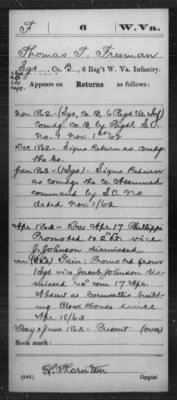 F 6 W. Va.
Thomas F. Freeman
Sgt., Co. B, 6 Reg't W. Va. Infantry.
Appears on Returns as follows:
Nov 1862- (Sgt, Co. B, 6 Regt Va Inf)
Comdg. Co. B by Regtl S.O.
No. 9 Nov 1st 62
Dec 1862- Signs Return as comdg
the Co.
Jan 1863- (1 Sgt) - Signs Return
as comdg the Co. Assumed
command by S.O. No
dated Nov 1/62
Apr 1863- Apr. 17 Phillippi
Promoted to 2nd Lt. vice
J. Johnson dismissed
Gain: Promoted from
1 Sgt vice Jacob Johnson dis-
missed 17 Apr.
Absent at Cornwallis build-
ing Block House since
Apr. 18/63
May & June 1863- Present
Book mark:
Thornton
(546) Copyist.